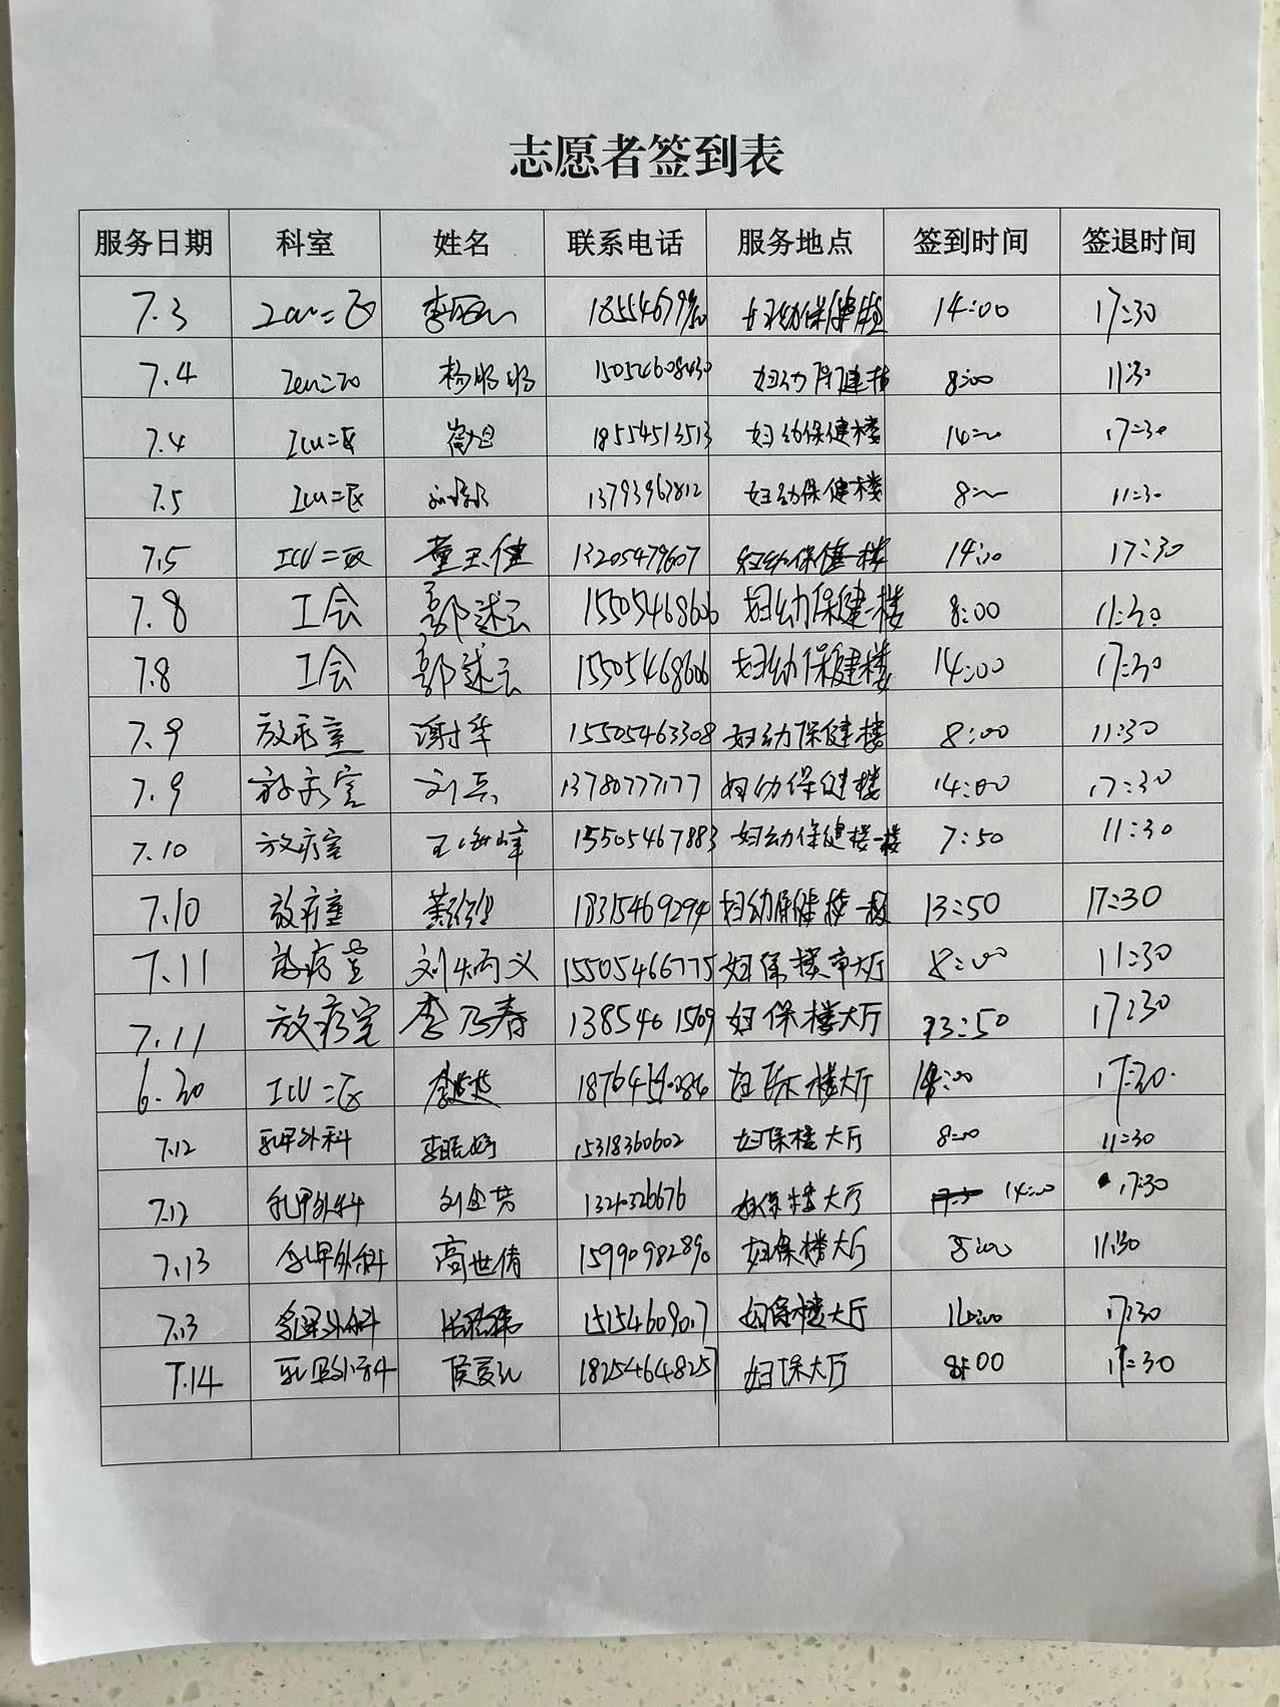 志愿者签到表
服务日期 科室 姓名 联系电话 服务地点 签到时间 签退时间
7.3 ICU二区 妇幼保健楼 14:00 17:30
7.4 ICU二区 杨明明 15054608430 妇幼保健楼 8:00 11:30
7.4 ICU二区 18554513513 妇幼保健楼 14:00 17:30
7.5 ICU二区 13793967812 妇幼保健楼 8:00 11:30
7.5 ICU二区 董玉健 13205479607 妇幼保健一楼 14:00 17:30
7.8 工会 郭述云 15505468606 妇幼保健一楼 8:00 11:30
7.8 工会 郭述云 15505468606 妇幼保健楼 14:00 17:30
7.9 放疗室 谢华 15505463308 妇幼保健楼 8:00 11:30
7.9 放疗室 刘兵 13780777177 妇幼保健楼 14:00 17:30
7.10 放疗室 王海峰 15505467883 妇幼保健楼一楼 7:50 11:30
7.10 放疗室 18315469294 妇幼保健楼一楼 13:50 17:30
7.11 放疗室 刘炳义 15505466775 妇保楼大厅 8:00 11:30
7.11 放疗室 李乃春 1385461569 妇保楼大厅 13:50 17:30
6.30 ICU二区 妇保楼大厅 14:00 17:30
7.12 乳甲外科 15318360602 妇保楼大厅 8:00 11:30
7.12 乳甲外科 刘金芳 妇保楼大厅 14:00 17:30
7.13 乳甲外科 高世倩 15990982890 妇保楼大厅 8:00 11:30
7.13 乳甲外科 妇保楼大厅 14:00 17:30
7.14 乳甲外科 18254648257 妇保大厅 8:00 17:30